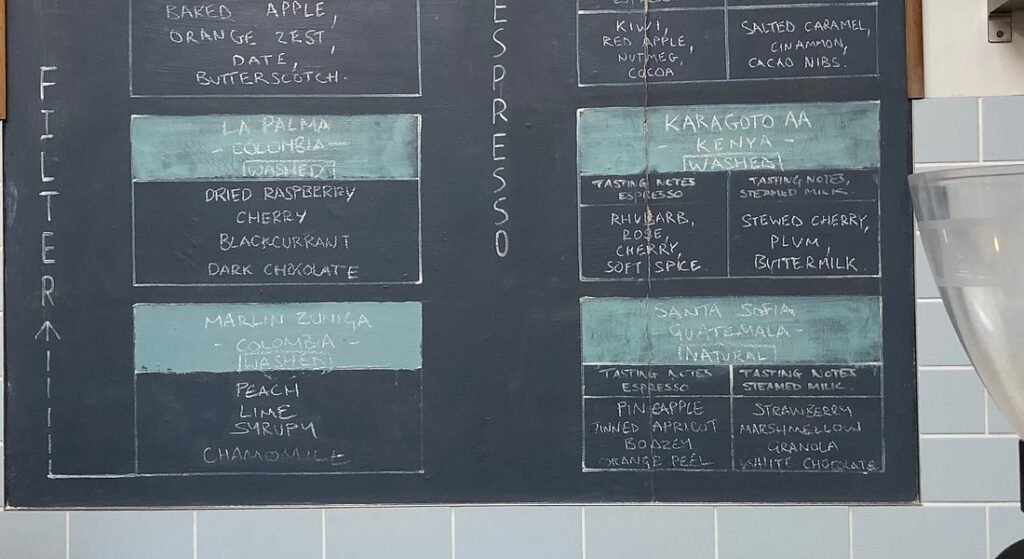 FILTER
BAKED APPLE,
ORANGE ZEST,
DATE,
BUTTERSCOTCH.
LA PALMA
- COLOMBIA -
WASHED
DRIED RASPBERRY
CHERRY
BLACKCURRANT
DARK CHOCOLATE
MARLIN ZUNIGA
- COLOMBIA -
WASHED
PEACH
LIME
SYRUPY
CHAMOMILE
ESPRESSO
ESPRESSO
KIWI,
RED APPLE,
NUTMEG,
COCOA
SALTED CARAMEL,
CINAMMON,
CACAO NIBS.
KARAGOTO AA
- KENYA -
WASHED
TASTING NOTES
ESPRESSO
RHUBARB,
ROSE,
CHERRY,
SOFT SPICE
TASTING NOTES,
STEAMED MILK.
STEWED CHERRY,
PLUM,
BUTTERMILK.
SANTA SOFIA
- GUATEMALA -
NATURAL
TASTING NOTES
ESPRESSO
PINEAPPLE
TINNED APRICOT
BOOZEY
ORANGE PEEL
TASTING NOTES
STEAMED MILK.
STRAWBERRY
MARSHMELLOW
GRANOLA
WHITE CHOCOLATE